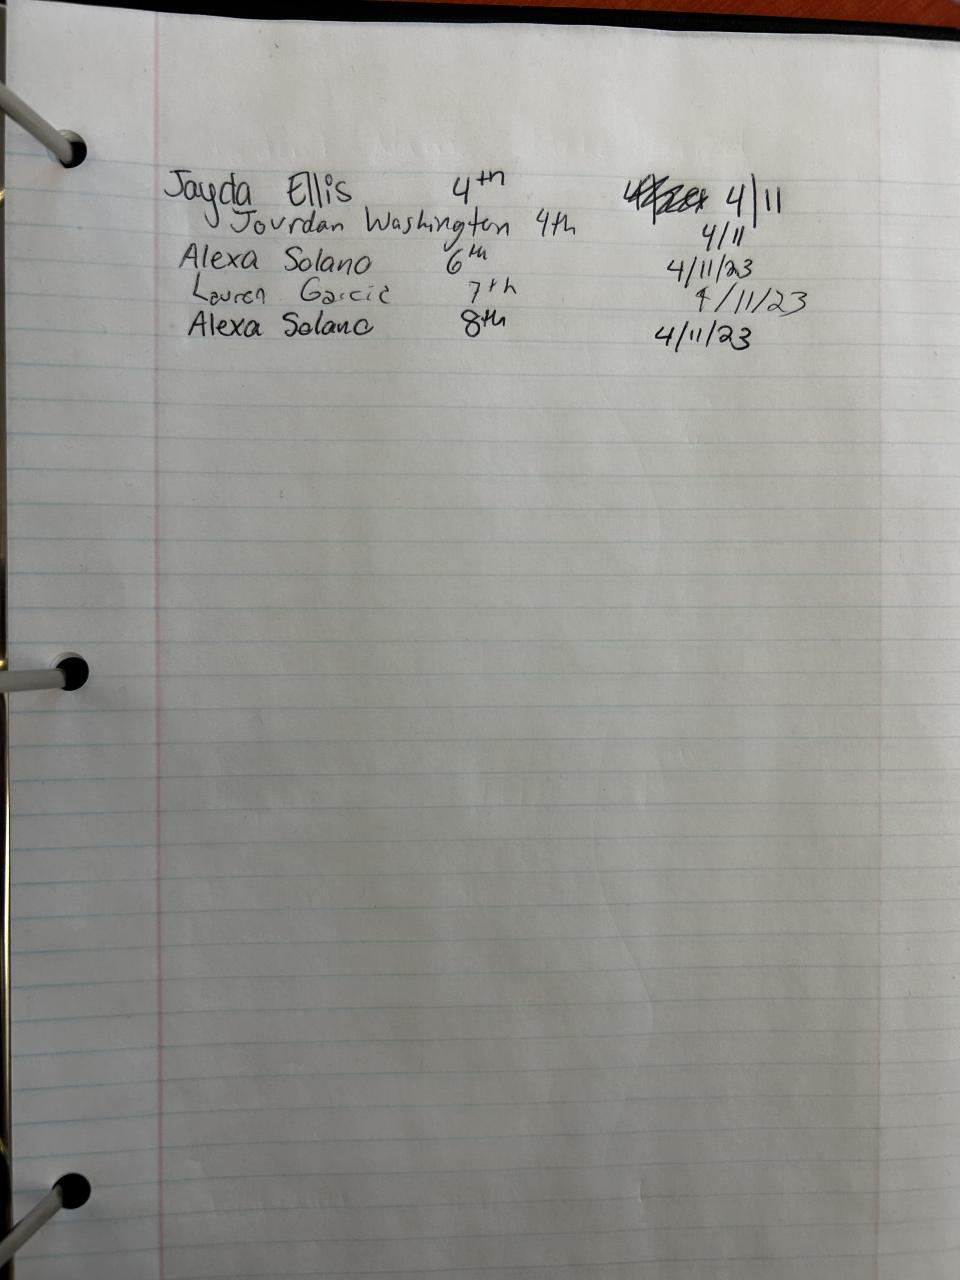 Jayda Ellis 4th 4/11
Jourdan Washington 4th 4/11
Alexa Solano 6th 4/11/23
Lauren Garcia 7th 4/11/23
Alexa Solano 8th 4/11/23